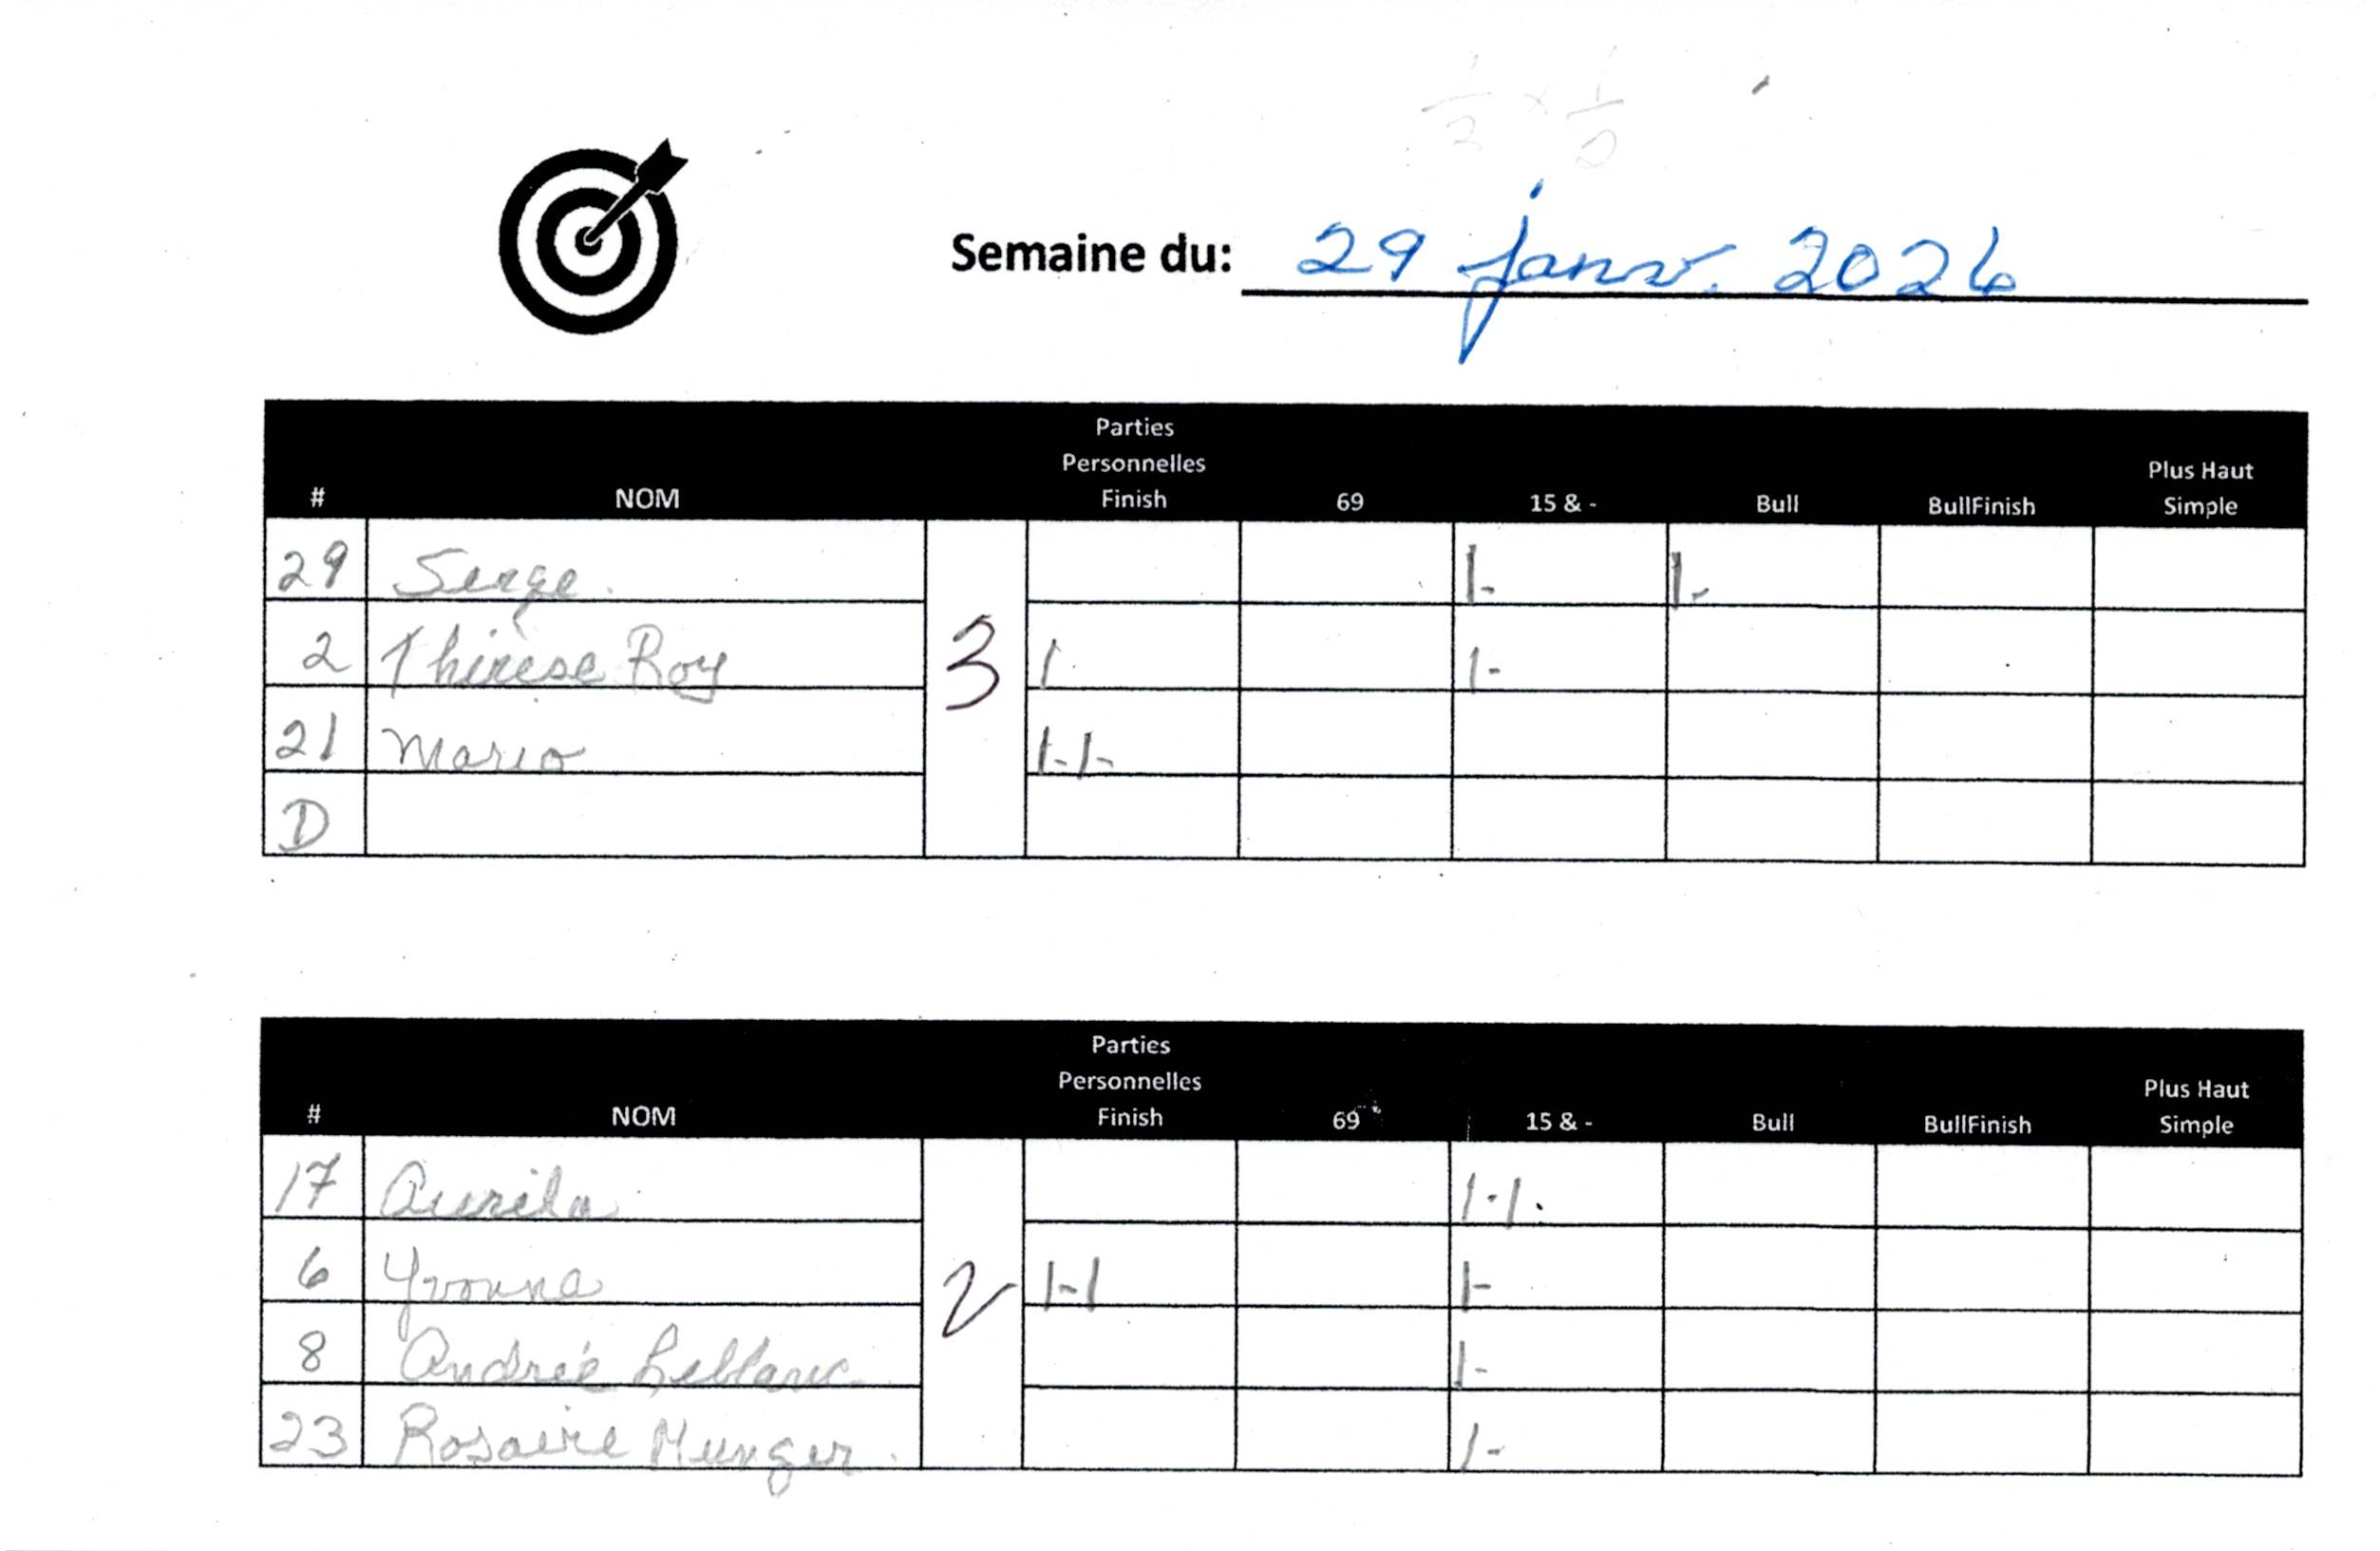 1/2 x 1/2
Semaine du: 29 janv. 2026
# NOM Parties Personnelles Finish 69 15 & - Bull BullFinish Plus Haut Simple
29 Serge. |- |-
2 Thérèse Roy 3 | |-
21 Mario |-|-
D
# NOM Parties Personnelles Finish 69 15 & - Bull BullFinish Plus Haut Simple
17 Aurila |-|-
6 Yvonne 2 |-| |-
8 Andrée Leblanc |-
23 Rosaire Munger |-